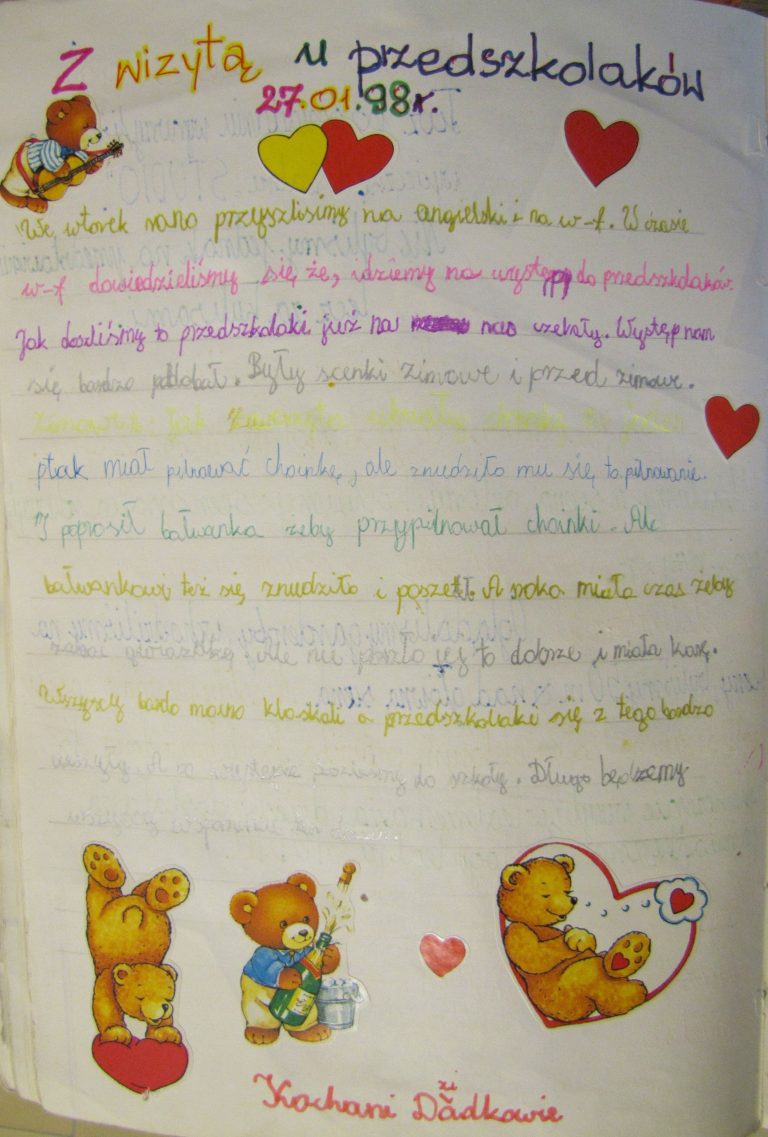 Z wizytą u przedszkolaków
27.01.98r.
We wtorek rano przyszliśmy na angielski i na w-f. W czasie
w-f dowiedzieliśmy się że, idziemy na występ do przedszkolaków.
Jak doszliśmy to przedszkolaki już na nas czekały. Występ nam
się bardzo podobał. Były scenki zimowe i przed zimowe.
zimowe. Jak zwierzęta ubrały choinkę to jeden
ptak miał pilnować choinkę, ale znudziło mu się to pilnowanie.
I poprosił bałwanka żeby przypilnował choinki. Ale
bałwankowi też się znudziło i poszedł. A sroka miała czas żeby
zabrać gwiazdkę, Ale nie poszło jej to dobrze i miała karę.
Wszyscy bardo mocno klaskali a przedszkolaki się z tego bardzo
cieszyły. A po występie poszliśmy do szkoły. Długo będziemy
wszyscy wspominać ten
Kochani Dziadkowie